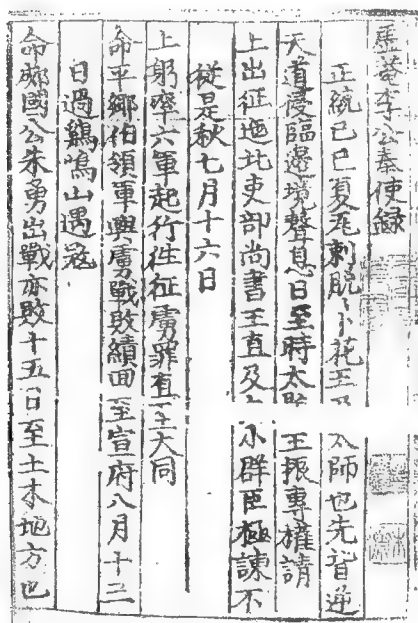 虛菴李公奉使錄
正統己巳夏瓦剌脫々卜花王及 太師也先皆逆
天道侵臨邊境聲息日至時太監 王振專權請
上出征迤北吏部尚書王直及大 小群臣極諫不
從是秋七月十六日
上躬率六軍起行往征虜罪直至大同
命平鄉伯領軍與虜戰敗績回至宣府八月十三
日過鷄鳴山遇寇
命郕國公朱勇出戰亦敗十五日至土木地方也